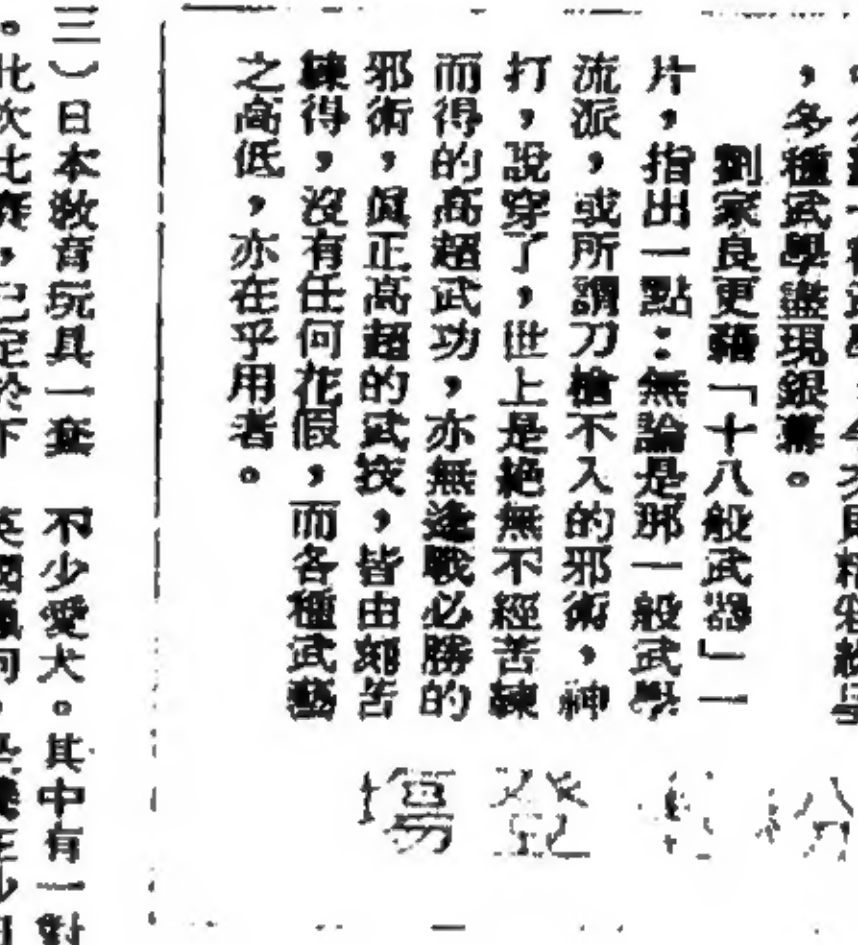 ，多種武學盡現銀幕。
劉家良更藉「十八般武器」一
片，指出一點：無論是那一般武學
流派，或所謂刀槍不入的邪術，神
打，說穿了，世上是絕無不經苦練
而得的高超武功，亦無逢戰必勝的
邪術，眞正高超的武技，皆由刻苦
練得，沒有任何花假，而各種武藝
之高低，亦在乎用者。
登場
三）日本敎育玩具一套
。此次比賽，已定於下
不少愛犬。其中有一對